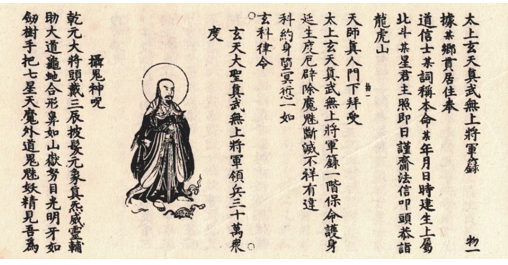 太上玄天真武無上將軍籙 物一
據某鄉貫居住奉
道信士某詞稱本命某年月日時建生上屬
北斗某星君主照即日謹齋法信叩頭恭詣
龍虎山
天師真人門下拜受
太上玄天真武無上將軍籙一階保命護身
延生度厄辟除魔魅斷滅不祥有違
科約身墮冥愆一如
玄科律令
玄天大聖真武無上將軍領兵三十萬眾
度
攝鬼神呪
乾元大將頭戴三辰披髮元象真炁威靈輔
助大道龜虵合形鼻如山嶽努目光明牙如
劒樹手把七星天魔外道鬼魅妖精見吾為